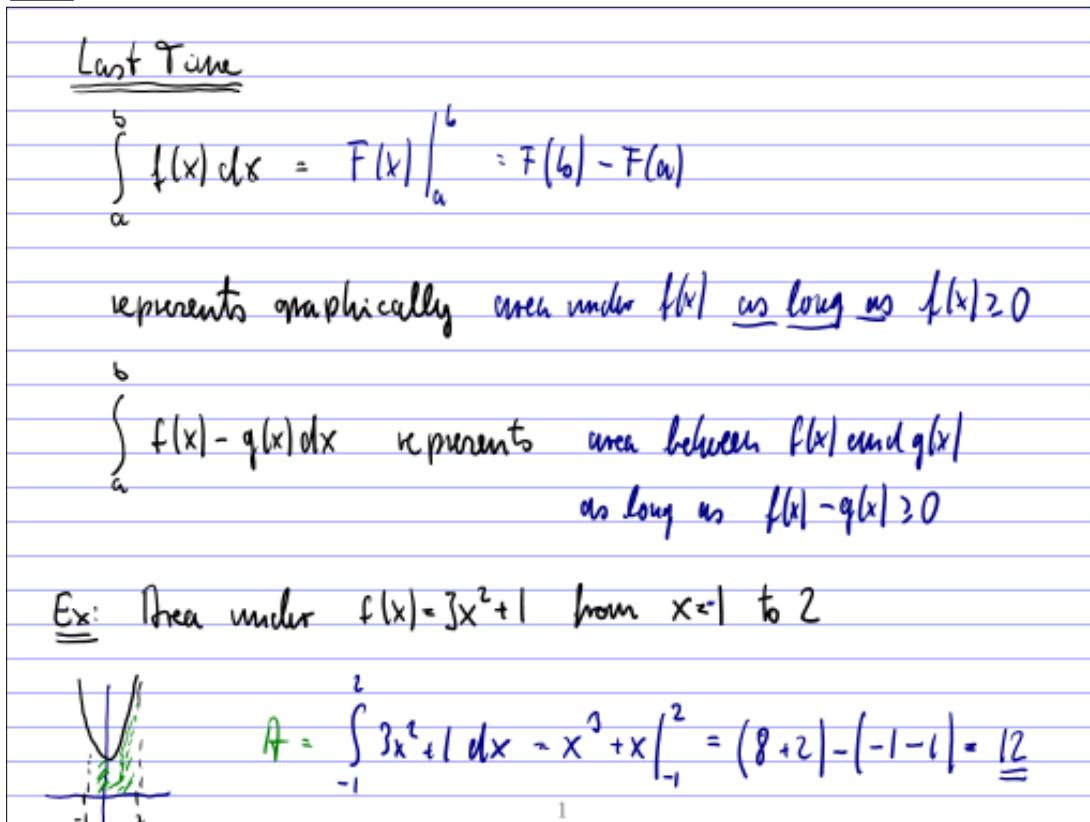 Last Time
∫_a^b f(x) dx = F(x) |_a^b = F(b) - F(a)
represents graphically area under f(x) as long as f(x) ≥ 0
∫_a^b f(x) - g(x) dx represents area between f(x) and g(x)
as long as f(x) - g(x) ≥ 0
Ex: Area under f(x) = 3x² + 1 from x=-1 to 2
A = ∫_{-1}^2 3x² + 1 dx = x³ + x |_{-1}^2 = (8 + 2) - (-1 - 1) = 12
-1 2
1